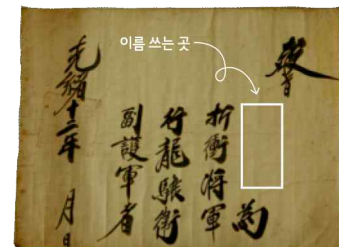 敎旨
이름 쓰는 곳
為
折衝將軍
行龍驤衛
副護軍者
光緖十二年 月 日